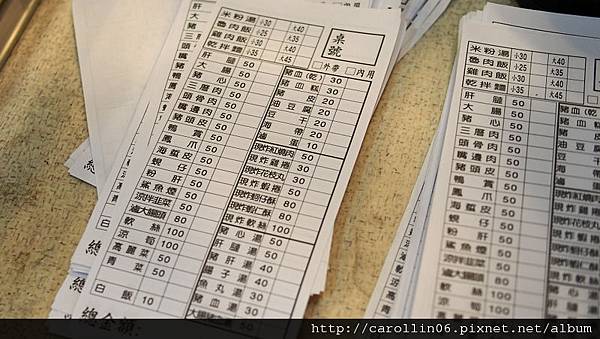 桌號
□外帶 □內用
米粉湯 小30 大40
魯肉飯 小25 大35
雞肉飯 小30 大40
乾拌麵 小25 大35
肝腱 50
大腸 50
豬心 50
三層肉 50
頭骨肉 50
嘴邊肉 50
豬頭皮 50
鴨賞 50
鳳爪 50
海蜇皮 50
蜆仔 50
粉肝 50
鯊魚煙 50
涼拌韭菜 50
滷大腸頭 80
軟絲 100
涼筍 100
高麗菜 50
青菜 50
白飯 10
豬血(乾) 30
豬血糕 30
豬皮 20
油豆腐 20
豆干 20
海帶 20
滷蛋 10
現炸紅燒肉 50
現炸雞捲 50
現炸花枝丸 50
現炸蝦捲 50
現炸蚵仔酥 50
現炸蝦仁酥 80
現炸軟絲 100
豬心湯 50
肝腱湯 50
豬腸湯 40
腸子湯 40
魚丸湯 30
豬血湯 30
大腸豬血湯 50
總金額:
米粉湯 小30 大40
魯肉飯 小25 大35
雞肉飯 小30 大40
乾拌麵 小25 大35
肝腱 50
大腸 50
豬心 50
三層肉 50
頭骨肉 50
嘴邊肉 50
豬頭皮 50
鴨賞 50
鳳爪 50
海蜇皮 50
蜆仔 50
粉肝 50
鯊魚煙 50
涼拌韭菜 50
滷大腸頭 80
軟絲 100
涼筍 100
高麗菜 50
青菜 50
http://carollin06.pixnet.net/album